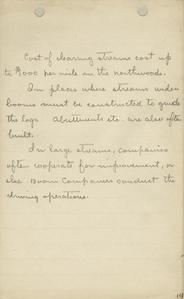 Cost of clearing streams cost up
to $1000 per mile in the northwoods.
In places where streams widen
booms must be constructed to guide
the logs. Abuttments etc. are also often
built.
In large streams, companies
often cooperate for improvement, or
else Boom Companies conduct the
driving operations.